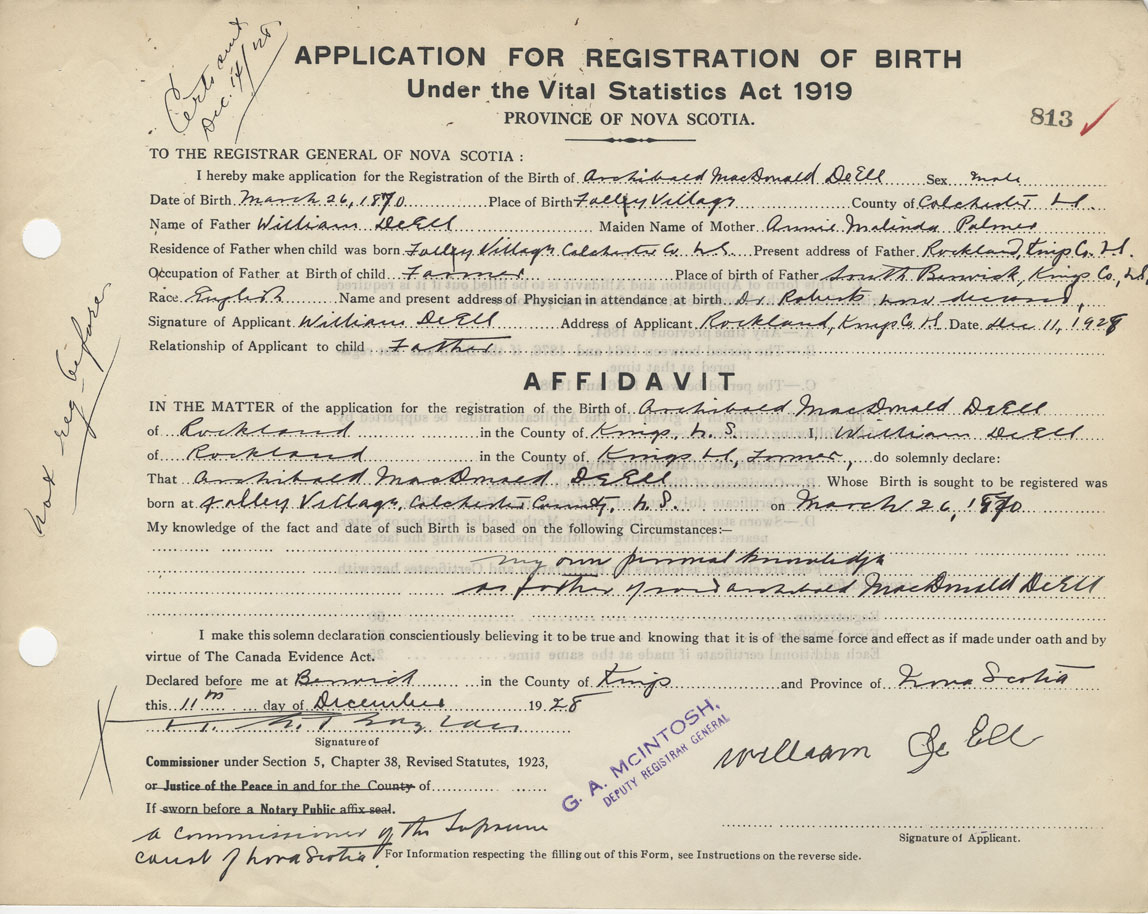 Certs sent
Dec. 14/28
APPLICATION FOR REGISTRATION OF BIRTH
Under the Vital Statistics Act 1919
PROVINCE OF NOVA SCOTIA.
813
TO THE REGISTRAR GENERAL OF NOVA SCOTIA :
I hereby make application for the Registration of the Birth of Archibald MacDonald DeEll Sex male
Date of Birth March 26, 1870 Place of Birth Folley Village County of Colchester N.S.
Name of Father William DeEll Maiden Name of Mother Annie Malinda Palmer
Residence of Father when child was born Folley Village Colchester Co. N.S. Present address of Father Rockland, Kings Co. N.S.
Occupation of Father at Birth of child Farmer Place of birth of Father South Berwick, Kings Co., N.S.
Race English Name and present address of Physician in attendance at birth Dr. Roberts now deceased,
Signature of Applicant William DeEll Address of Applicant Rockland, Kings Co. N.S. Date Dec. 11, 1928
Relationship of Applicant to child Father
not reg. before
AFFIDAVIT
IN THE MATTER of the application for the registration of the Birth of Archibald MacDonald DeEll
of Rockland in the County of Kings, N.S. I, William DeEll
of Rockland in the County of Kings N.S, Farmer, do solemnly declare:
That Archibald MacDonald DeEll Whose Birth is sought to be registered was
born at Folley Village, Colchester County, N.S. on March 26, 1870
My knowledge of the fact and date of such Birth is based on the following Circumstances:—
my own personal knowledge
as father of said Archibald MacDonald DeEll
I make this solemn declaration conscientiously believing it to be true and knowing that it is of the same force and effect as if made under oath and by
virtue of The Canada Evidence Act.
Declared before me at Berwick in the County of Kings and Province of Nova Scotia
this 11th day of December 1928
Signature of
Commissioner under Section 5, Chapter 38, Revised Statutes, 1923,
or Justice of the Peace in and for the County of
If sworn before a Notary Public affix seal.
a commissioner of the Supreme
Court of Nova Scotia
G. A. MCINTOSH,
DEPUTY REGISTRAR GENERAL
William DeEll
Signature of Applicant.
For Information respecting the filling out of this Form, see Instructions on the reverse side.